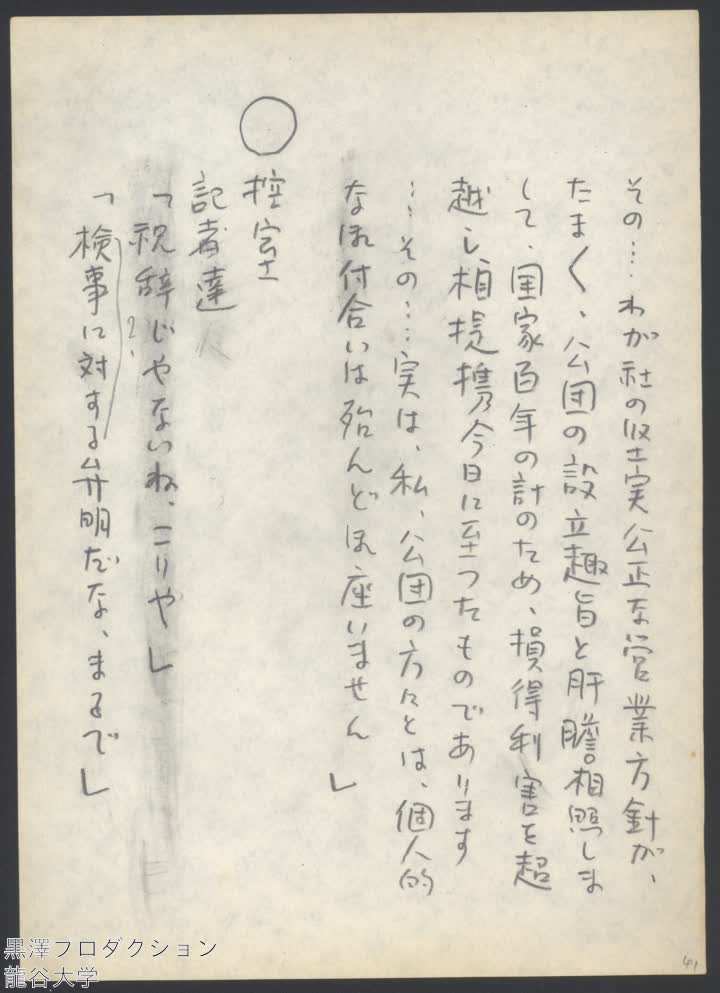 その…わが社の堅実公正な営業方針が、
たま〱、公団の設立趣旨と肝膽相照しま
して、国家百年の計のため、損得利害を超
越し相提携今日に至つたものであります
…その…実は、私、公団の方々とは、個人的
なほ付合いは殆んどほ座いません」
◯控室
記者達
「祝辞じやないね、こりや」
「検事に対する弁明だな、まるで」
41
黒澤プロダクション
龍谷大学